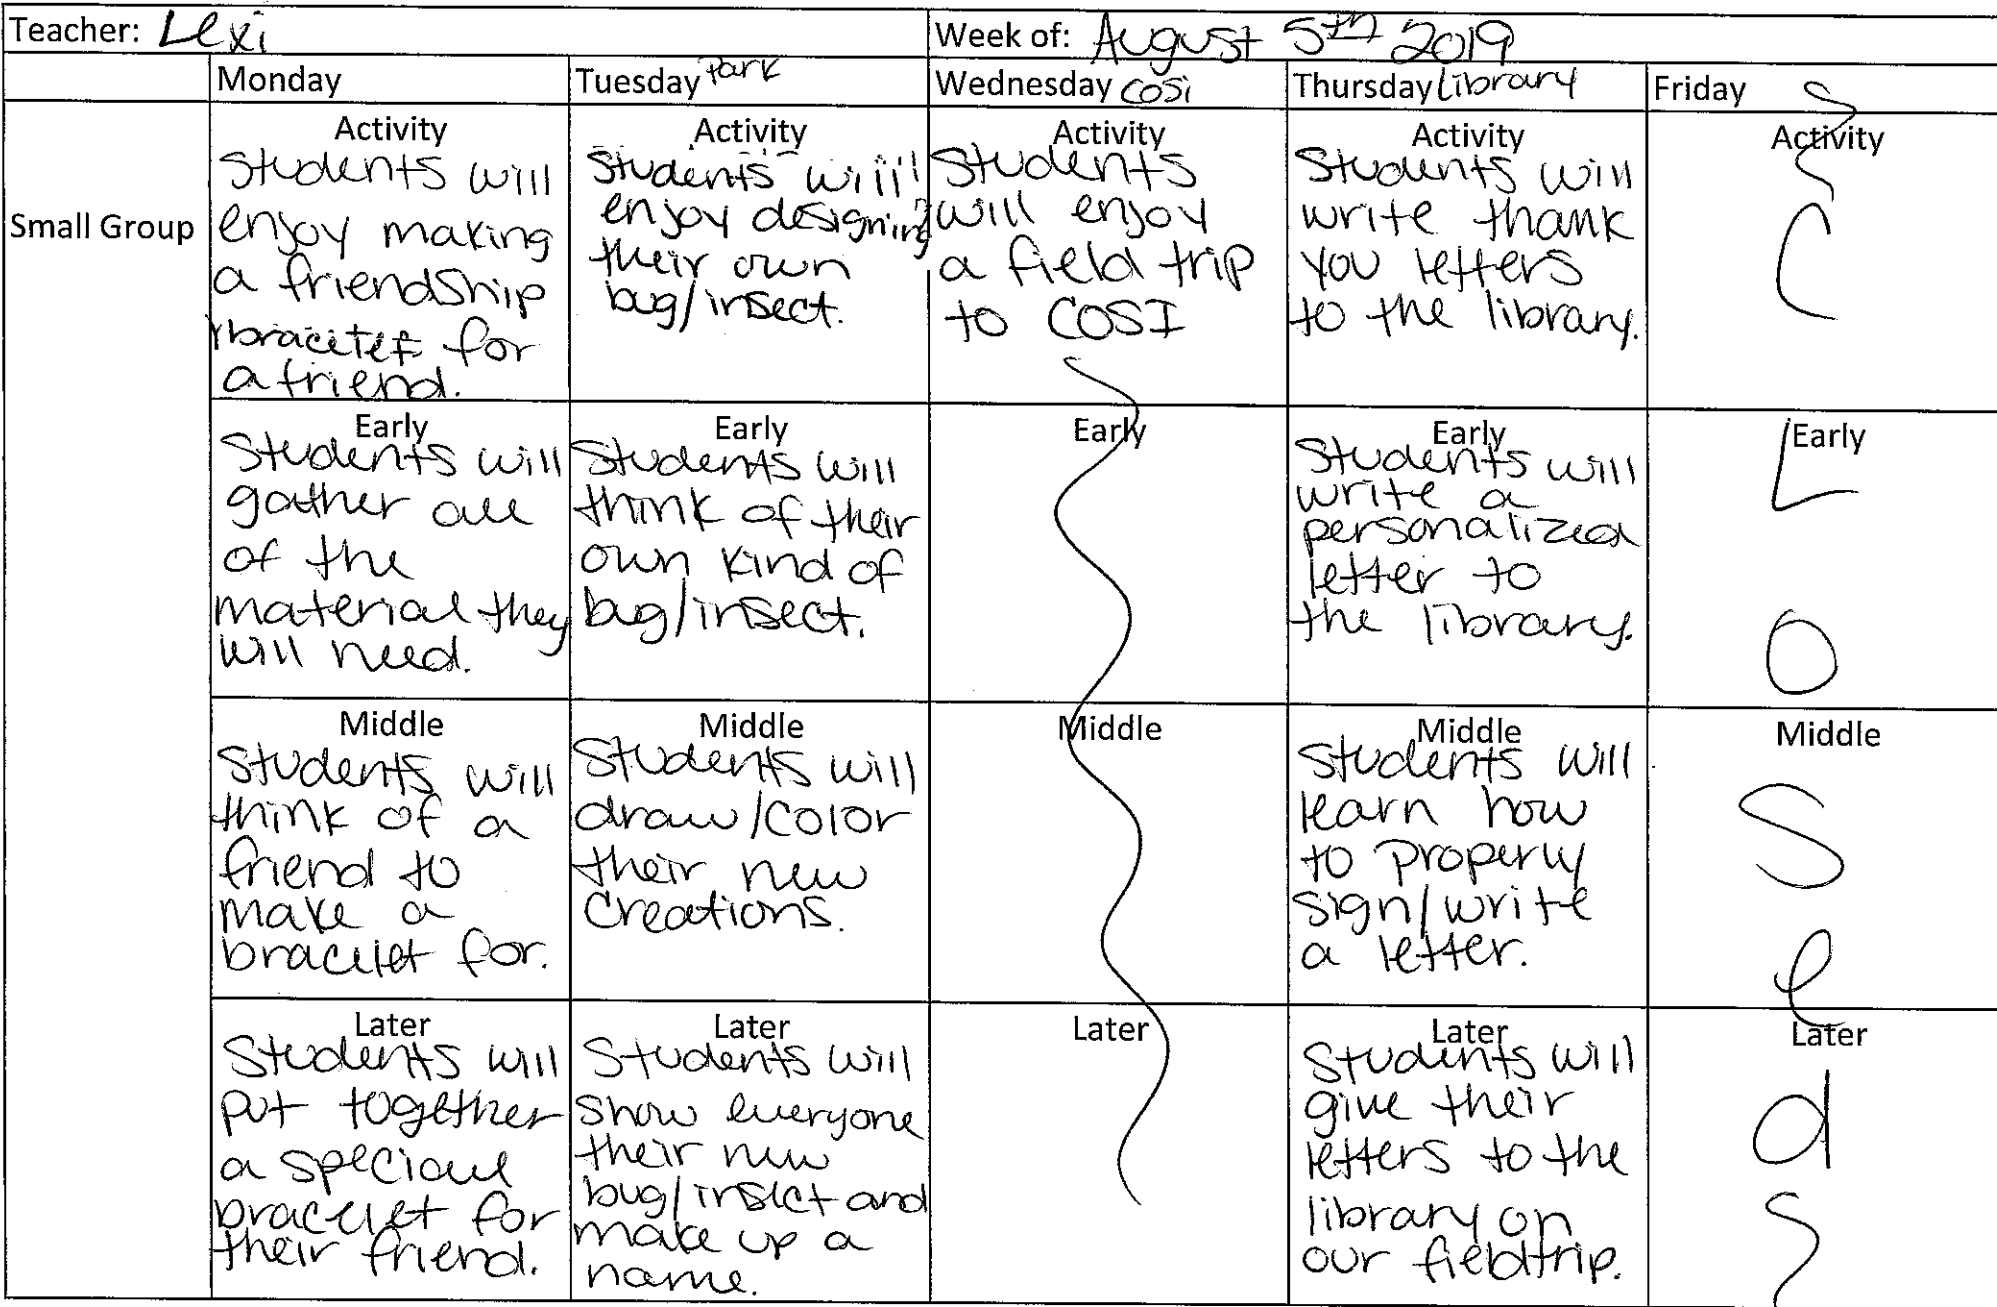 Teacher: Lexi
Week of: August 5th 2019
Monday
Tuesday Park
Wednesday COSi
Thursday Library
Friday
Small Group
Activity
Students will
enjoy making
a friendship
bracelet for
a friend.
Activity
Students will
enjoy designing
their own
bug/insect.
Activity
Students
will enjoy
a field trip
to COSI
Activity
Students will
write thank
you letters
to the library.
Activity
Early
Students will
gather all
of the
material they
will need.
Early
Students will
think of their
own kind of
bug/insect.
Early
Early
Students will
write a
personalized
letter to
the library.
Early
Middle
Students will
think of a
friend to
make a
bracelet for.
Middle
Students will
draw/color
their new
creations.
Middle
Middle
Students will
learn how
to properly
sign/write
a letter.
Middle
Later
Students will
put together
a special
bracelet for
their friend.
Later
Students will
show everyone
their new
bug/insect and
make up a
name.
Later
Later
Students will
give their
letters to the
library on
our fieldtrip.
Later
C
L
O
S
e
d